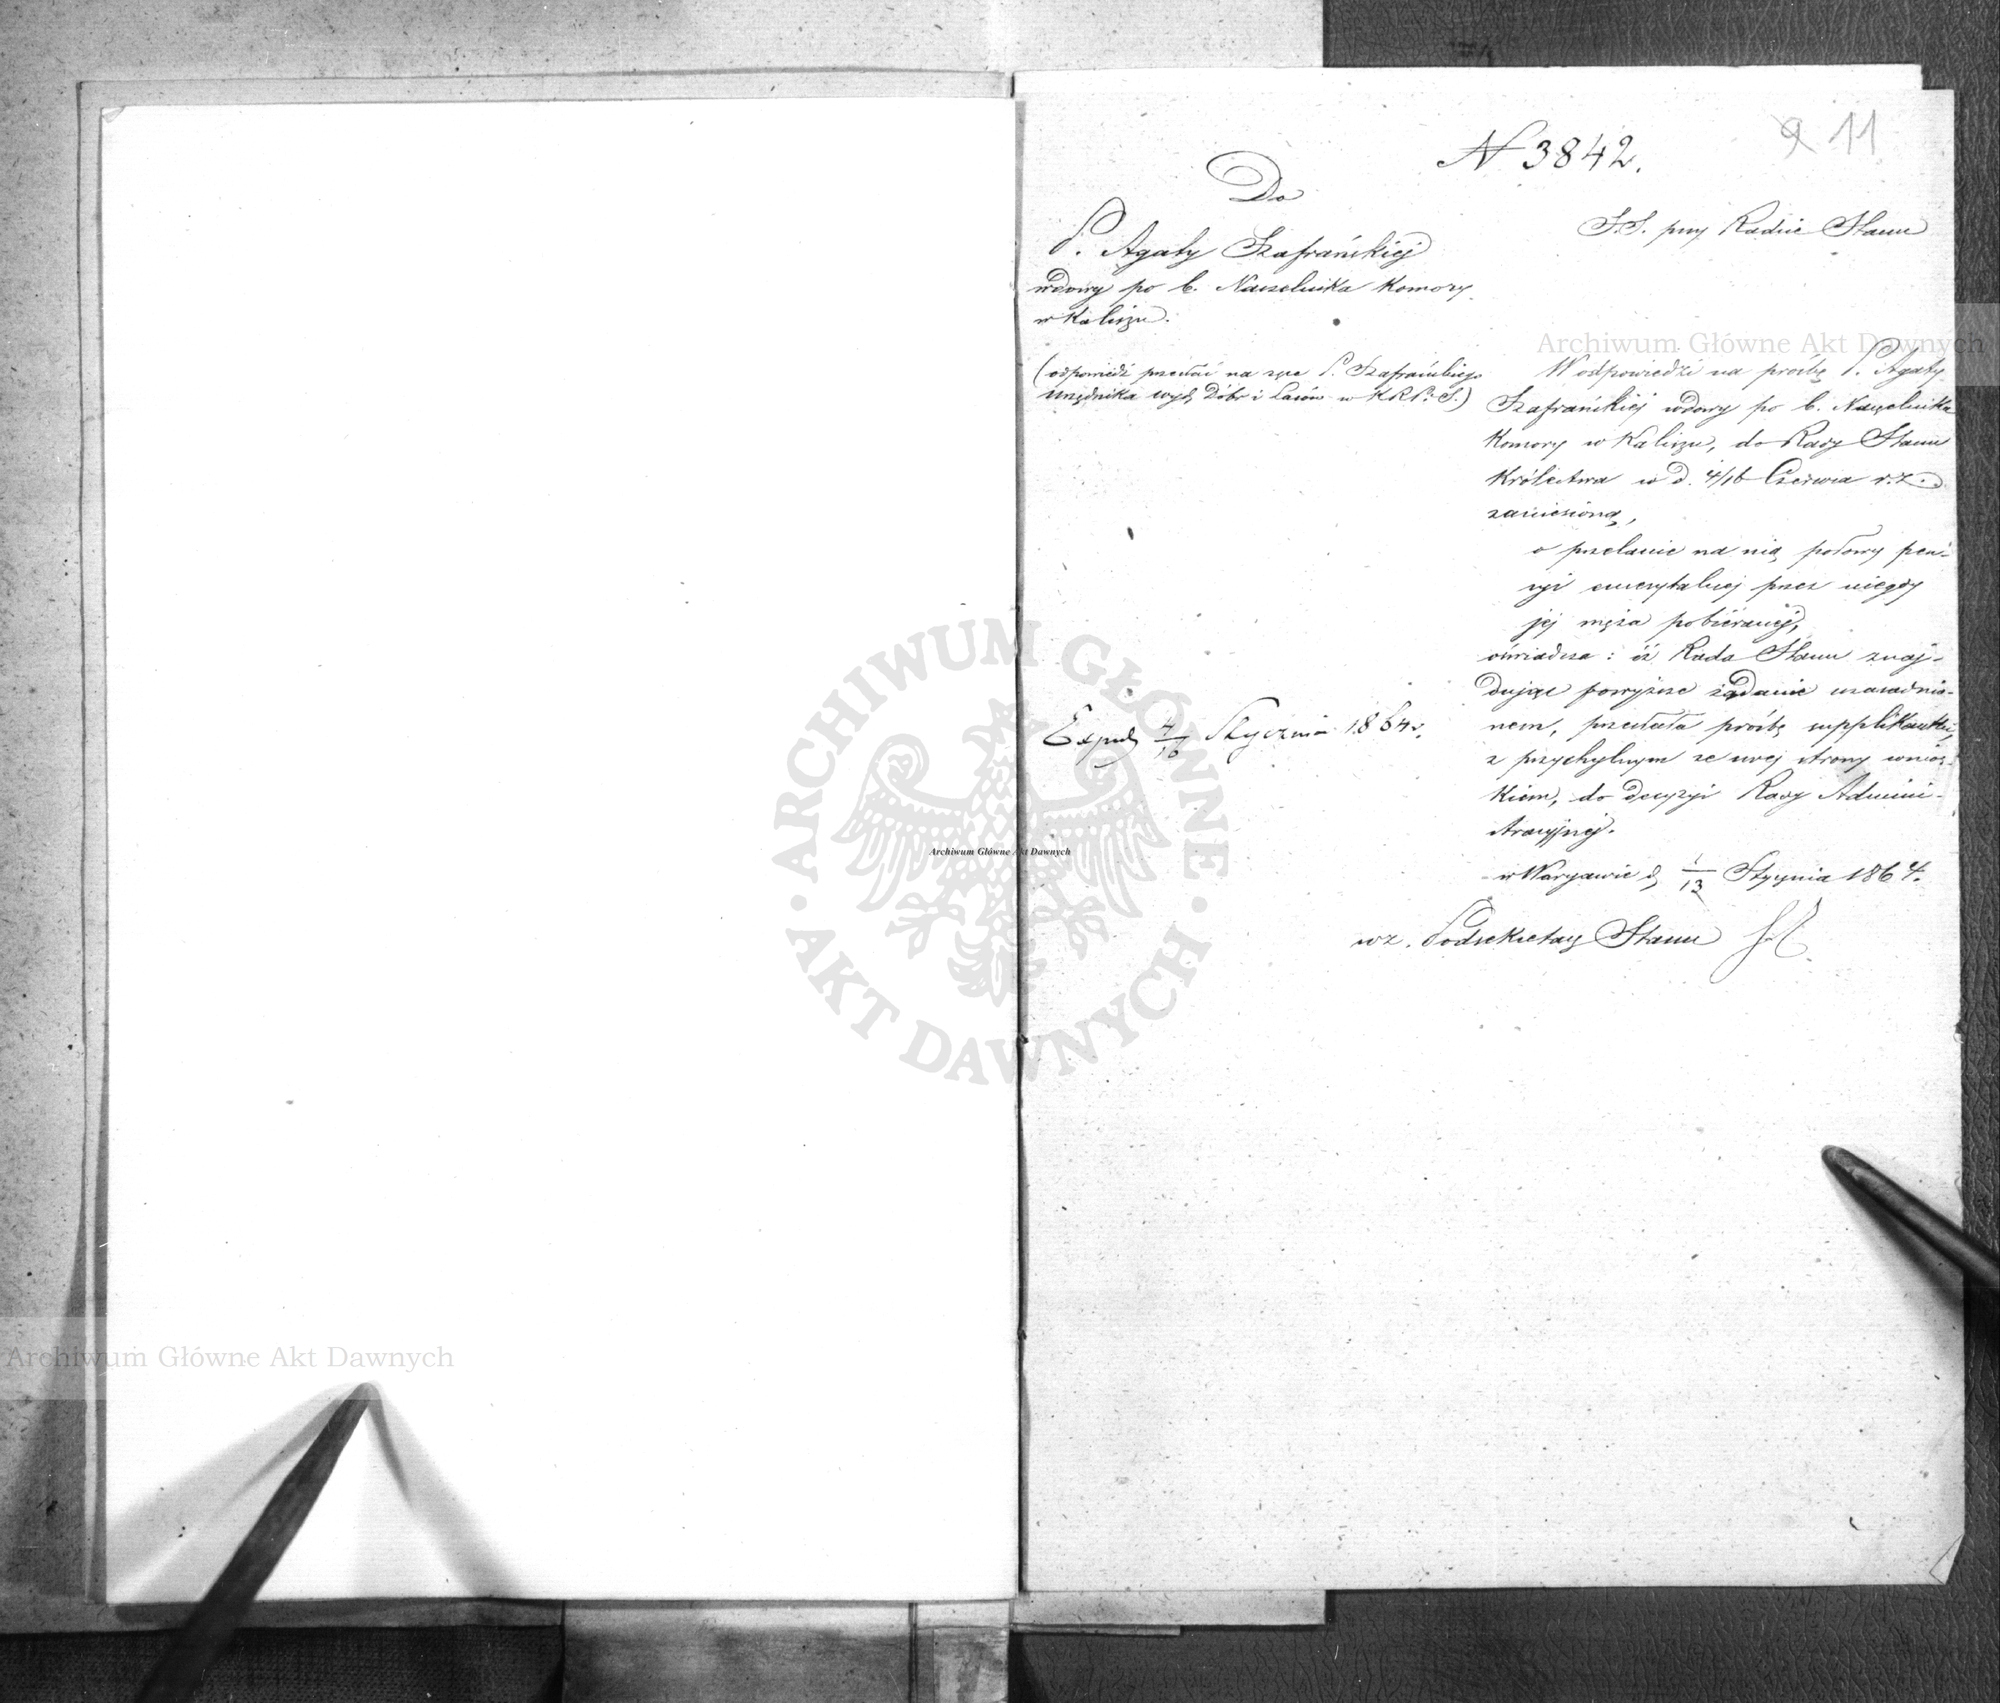 9 11
N 3842.
Do
P. Agaty Szafrańskiej
wdowy po b. Naczelnika Komory
w Kaliszu.
(odpowiedź przesłać na ręce P. Szafrańskiego
urzędnika wydz Dóbr i Lasów w KRPiS.)
Exped 4/16 Stycznia 1864 r.
S.S. przy Radzie Stanu
W odpowiedzi na prośbę P. Agaty
Szafrańskiej wdowy po b. Naczelnika
Komory w Kaliszu, do Rady Stanu
Królestwa w d. 4/16 Czerwca r.z.
zaniesioną,
o przelanie na nią połowy pen-
syi emerytalnej przez niegdy
jej męża pobieranej,
oświadcza: iż Rada Stanu znaj-
dując powyższe żądanie uzasadnio-
nem, przesłała prośbę supplikantki,
z przychylnym ze swej strony wnios-
kiem, do decyzyi Rady Admini-
stracyjnej.
w Warszawie d 1/13 Stycznia 1864.
wz. Podsekretarz Stanu
Archiwum Główne Akt Dawnych
ARCHIWUM GŁÓWNE AKT DAWNYCH
Archiwum Główne Akt Dawnych
Archiwum Główne Akt Dawnych